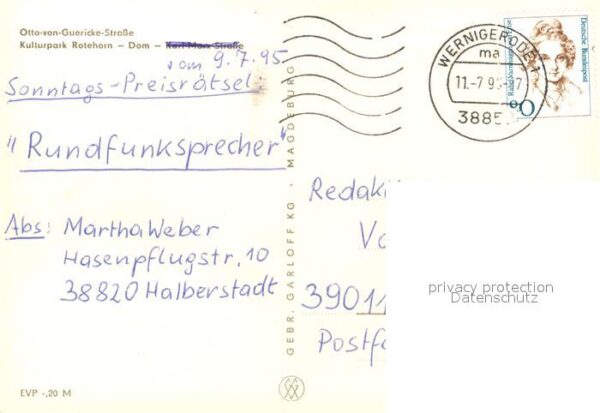 Otto-von-Guericke-Straße
Kulturpark Rotehorn – Dom – Karl-Marx-Straße
vom 9.7.95
Sonntags-Preisrätsel:
"Rundfunksprecher"
Abs: Martha Weber
Hasenpflugstr. 10
38820 Halberstadt
EVP -,20 M
GEBR. GARLOFF KG · MAGDEBURG
WERNIGERODE 1
ma
11.-7.95
3885
Deutsche Bundespost
Redak
39011
Postf
privacy protection
Datenschutz